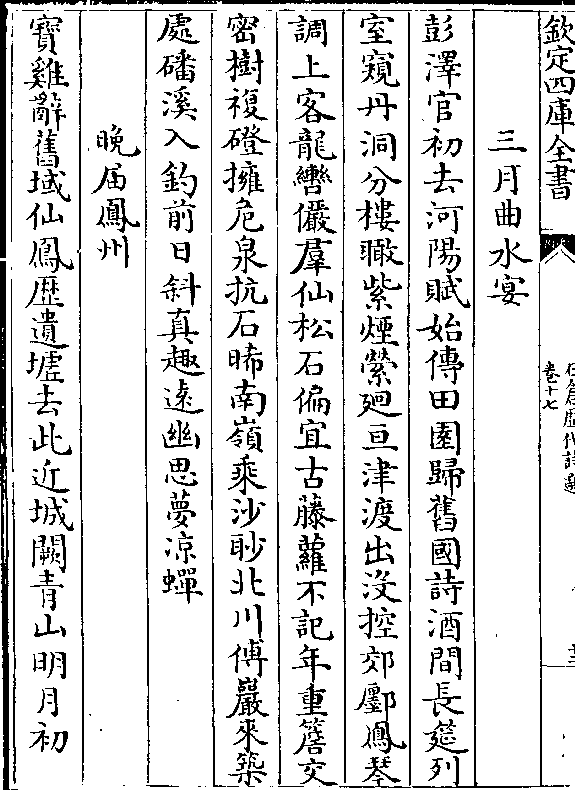 欽定四庫全書
卷十七
三月曲水宴
彭澤官初去河陽賦始傳田園歸舊國詩酒間長筵列
室窺丹洞分樓瞰紫煙縈廻亘津渡出没控郊鄽鳳琴
調上客龍轡儼羣仙松石偏宜古藤蘿不記年重簷交
密樹複磴擁危泉抗石晞南嶺乘沙眇北川傅巖來築
處磻溪入釣前日斜真趣遠幽思夢涼蟬
晚届鳳州
寶雞辭舊域仙鳳歴遺墟去此近城闕青山明月初